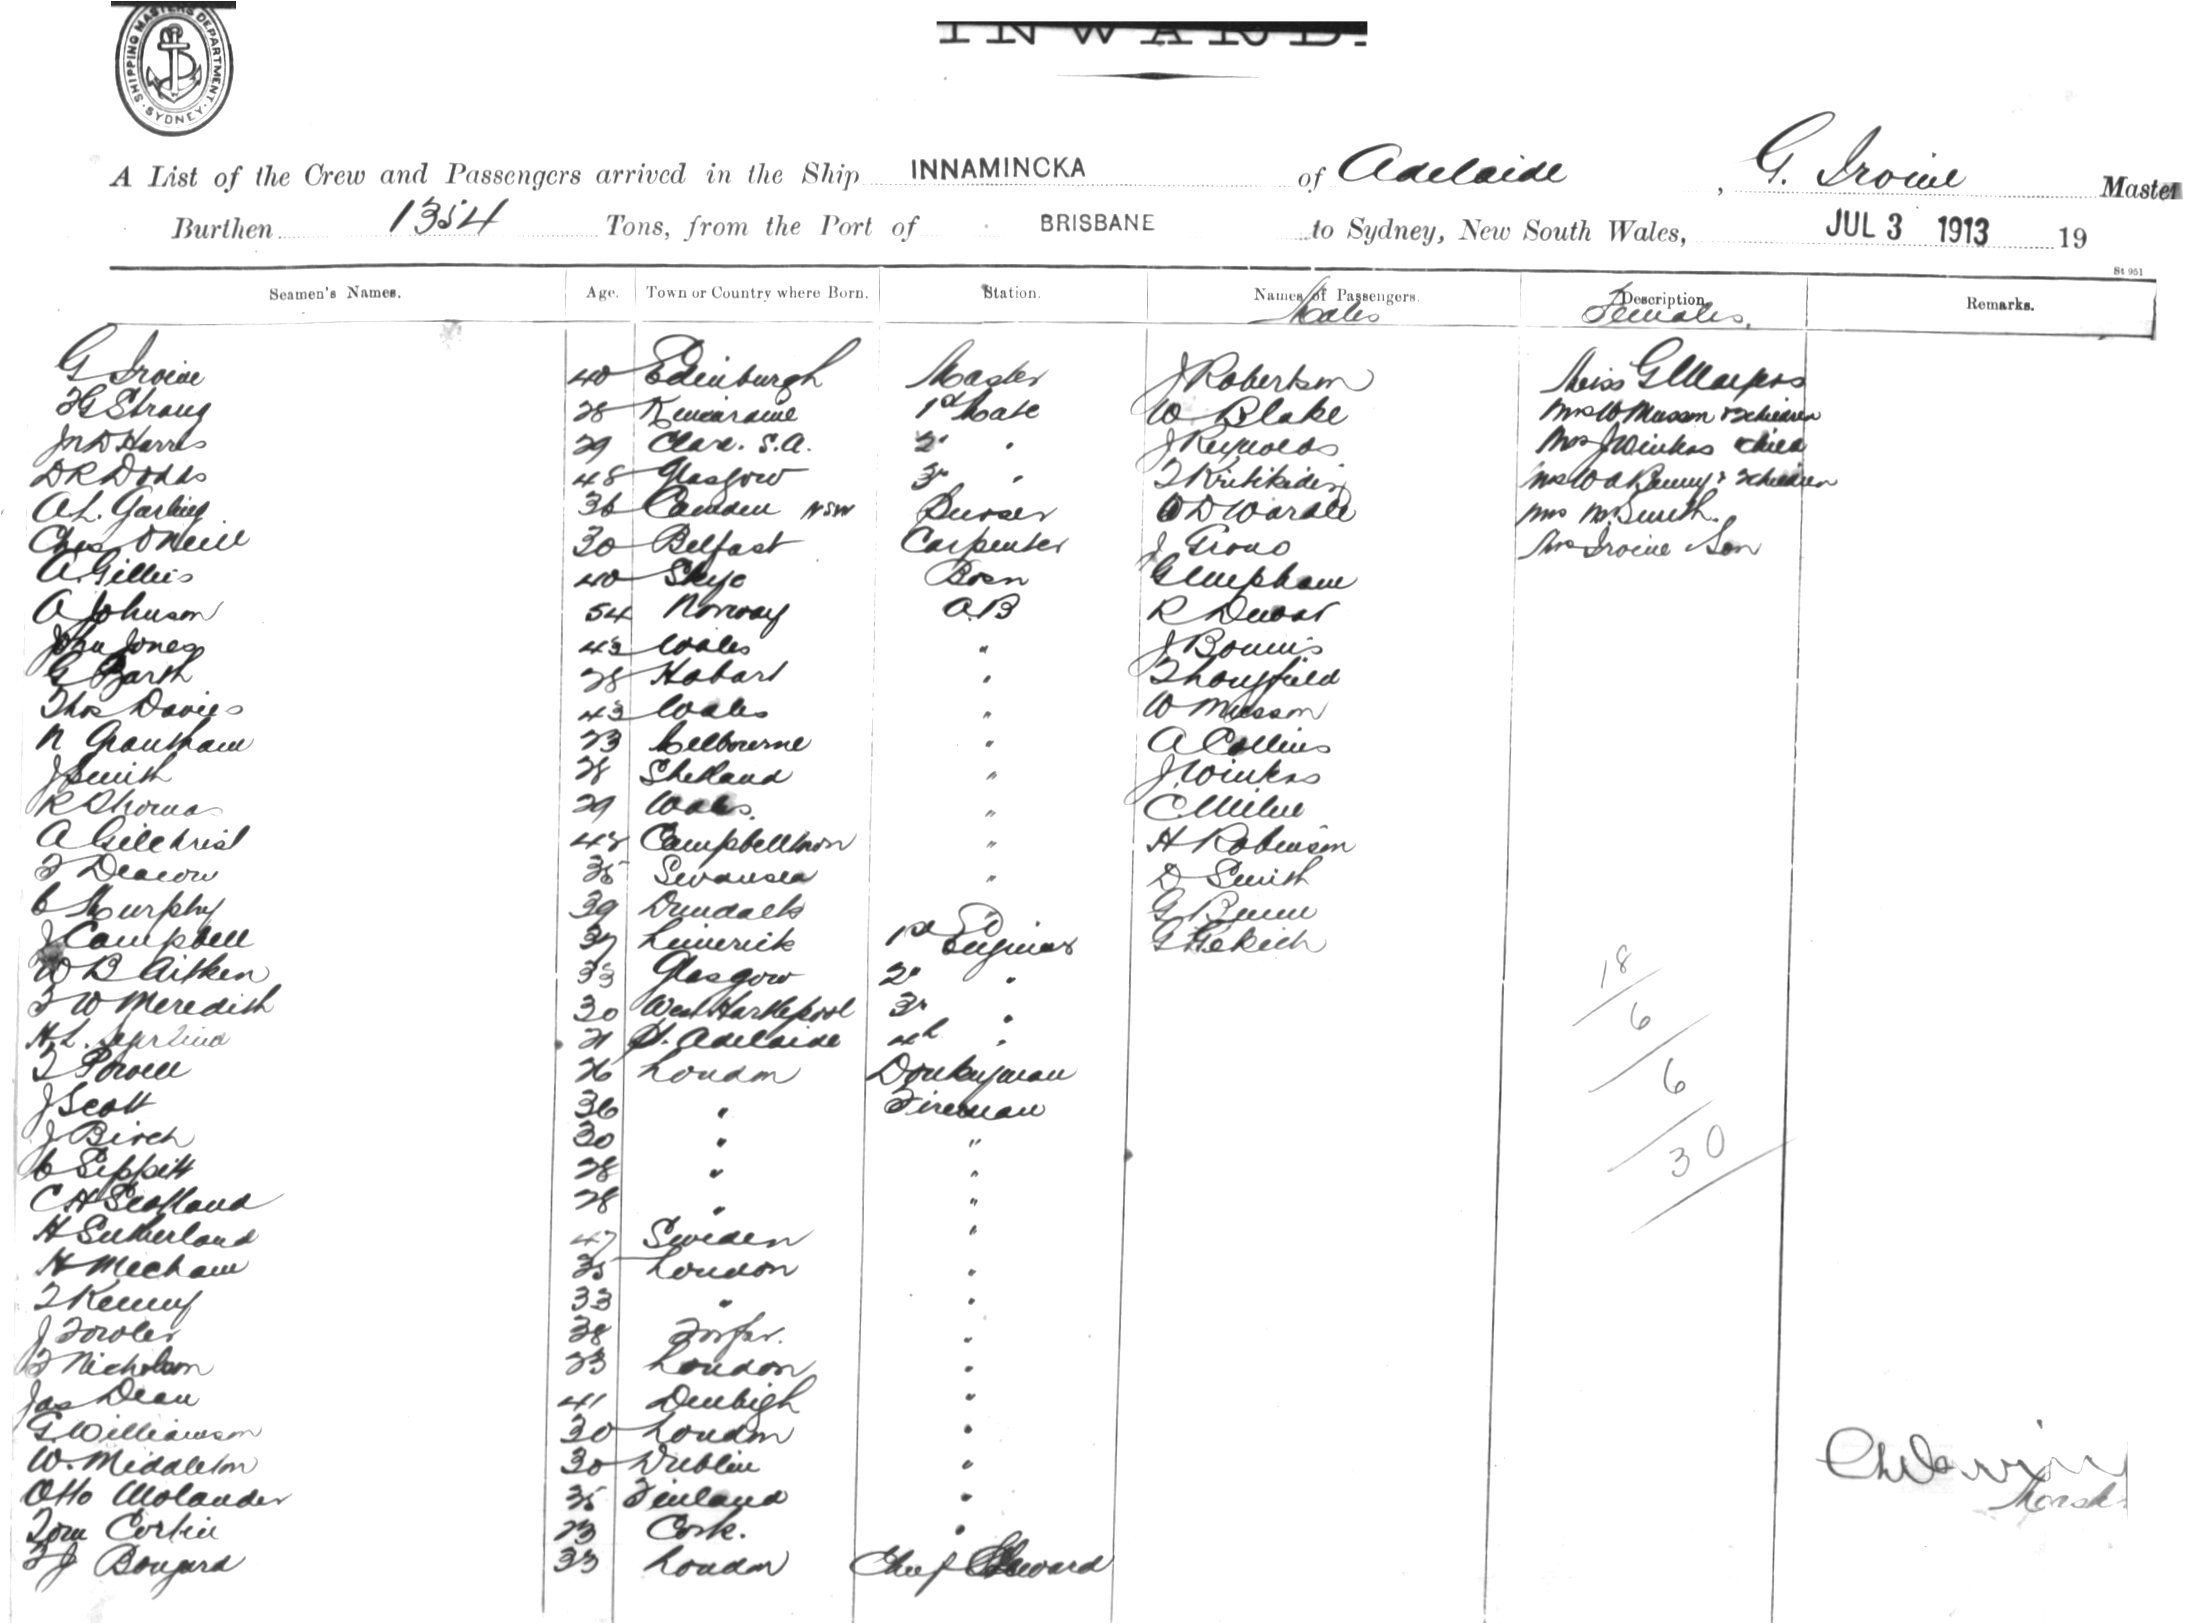 SHIPPING MASTERS DEPARTMENT · SYDNEY ·
INWARD.
A List of the Crew and Passengers arrived in the Ship INNAMINCKA of Adelaide, G. Irvine Master
Burthen 1354 Tons, from the Port of BRISBANE to Sydney, New South Wales, JUL 3 1913 19
St 951
Seamen's Names. Age. Town or Country where Born. Station. Names of Passengers. Description Remarks.
Males Females.
G Irvine 40 Edinburgh Master J Robertson Miss G
28 1st Mate W Blake Mrs W Musson
Harris 29 Clare. S.A. 2" " J Reynolds Mrs J child
D R Dodds 48 Glasgow 3rd " Mrs W A children
A.L. Garling 36 Camden NSW Purser D Wardle Mrs Smith.
Chas O'Neill 30 Belfast Carpenter J Mrs Irvine Son
A. Gillies 40 Skye Bosn G
A Johnson 54 Norway A.B R
John Jones 43 Wales " J
G Barth 28 Hobart "
Thos Davies 43 Wales " W Musson
N Grantham 23 Melbourne " A Collins
J Smith 28 Shetland " J
R Thomas 29 Wales. " C Milne
A Gilchrist 48 Campbelltown " H Robinson
F Deacon 35 Swansea " D Smith
C Murphy 39 Dundalk " G
J Campbell 37 Limerick 1st Engineer G
W B Aitken 33 Glasgow 2" " 18
F W Meredith 30 West Hartlepool 3rd " 6
H.L. 21 Pt. Adelaide 4th "
F Powell 26 London Donkeyman 6
J Scott 36 " Fireman
J Birch 30 " " 30
C Sippitt 28 " "
C H Scotland 28 " "
H Sutherland 47 Sweden "
H Mecham 35 London "
F Kenny 33 " "
J Fowler 38 Forfar. "
F Nicholson 23 London "
Jas Dean 41 Denbigh "
G. Williamson 30 London "
W. Middleton 30 Dublin "
Otto Molander 35 Finland "
Tom Corbin 23 Cork. "
F J Bongard 33 London Chief Steward